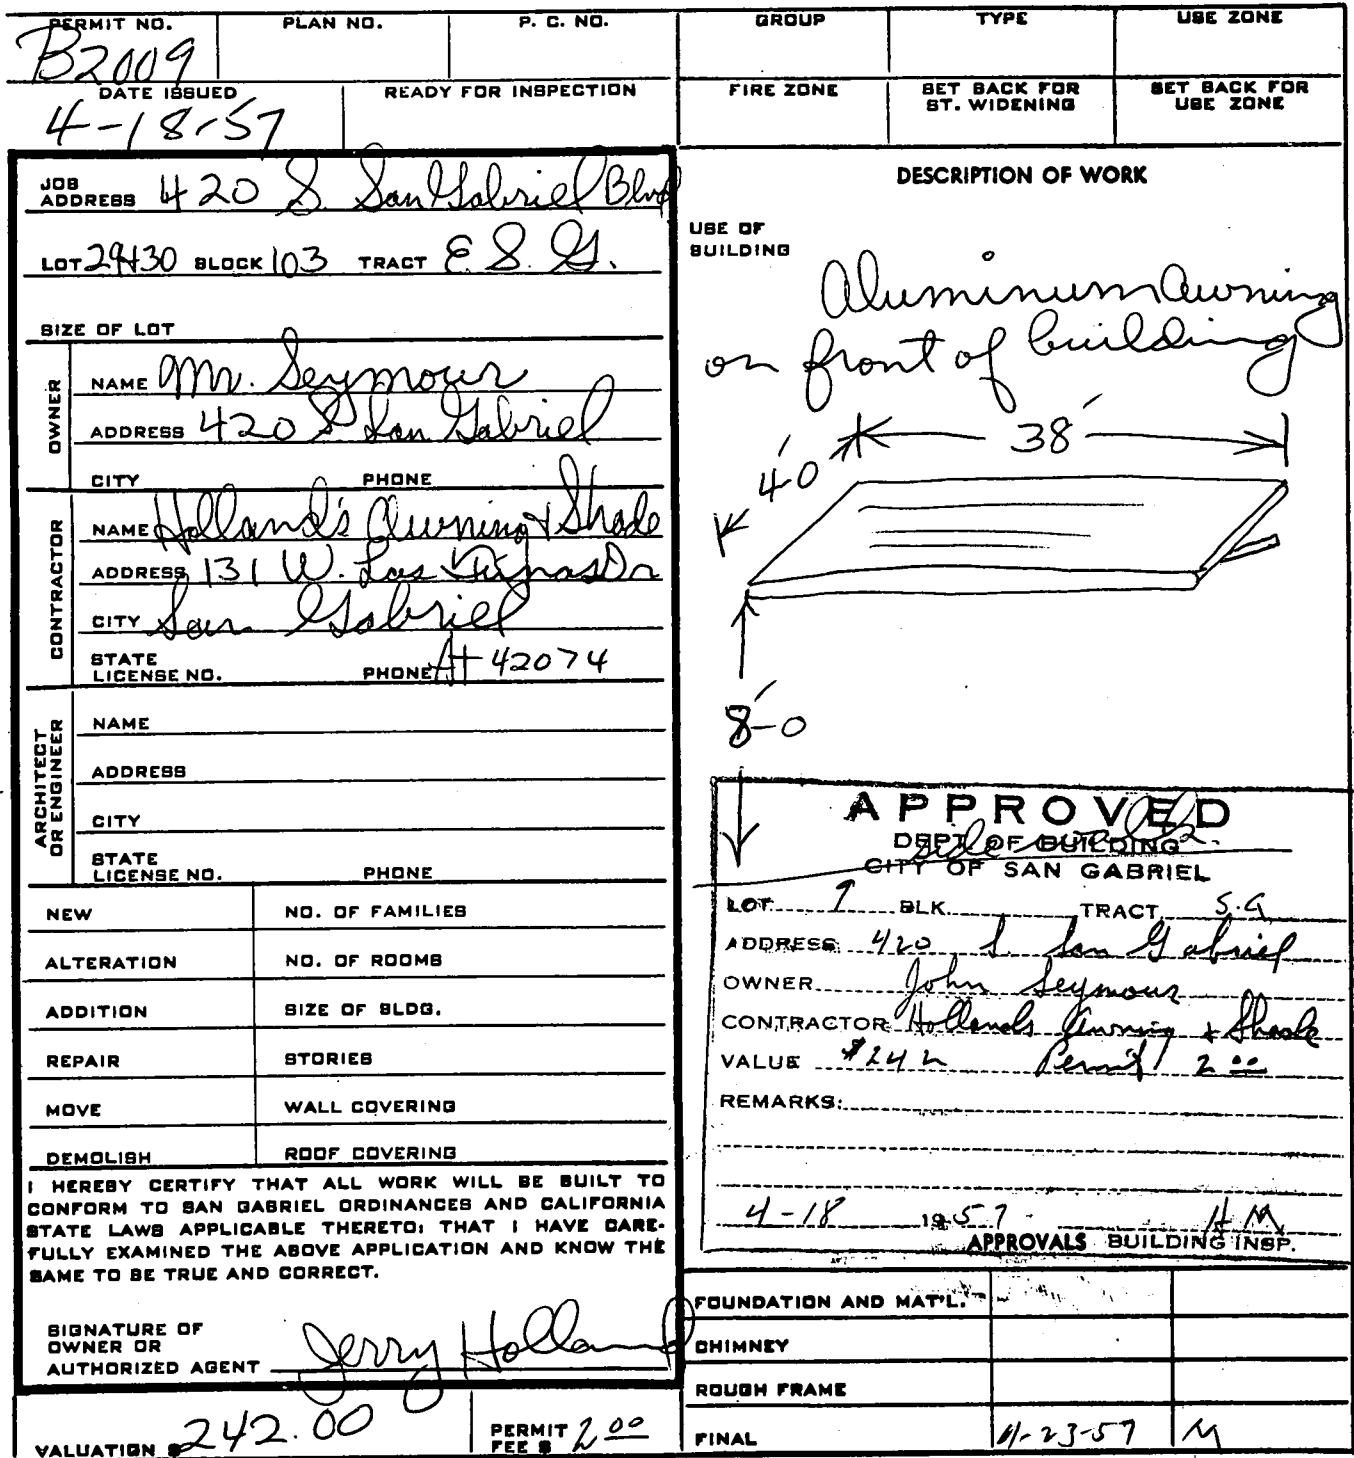 PERMIT NO. PLAN NO. P. C. NO. GROUP TYPE USE ZONE
B2009
DATE ISSUED READY FOR INSPECTION FIRE ZONE SET BACK FOR ST. WIDENING SET BACK FOR USE ZONE
4-18-57
JOB ADDRESS 420 S. San Gabriel Blvd
LOT 29+30 BLOCK 103 TRACT E. S. G.
SIZE OF LOT
OWNER
NAME Mr. Seymour
ADDRESS 420 S San Gabriel
CITY PHONE
CONTRACTOR
NAME Holland's Awning & Shade
ADDRESS 131 W. Las Tunas Dr
CITY San Gabriel
STATE LICENSE NO. PHONE At 42074
ARCHITECT OR ENGINEER
NAME
ADDRESS
CITY
STATE LICENSE NO. PHONE
NEW NO. OF FAMILIES
ALTERATION NO. OF ROOMS
ADDITION SIZE OF BLDG.
REPAIR STORIES
MOVE WALL COVERING
DEMOLISH ROOF COVERING
I HEREBY CERTIFY THAT ALL WORK WILL BE BUILT TO
CONFORM TO SAN GABRIEL ORDINANCES AND CALIFORNIA
STATE LAWS APPLICABLE THERETO; THAT I HAVE CARE-
FULLY EXAMINED THE ABOVE APPLICATION AND KNOW THE
SAME TO BE TRUE AND CORRECT.
SIGNATURE OF
OWNER OR
AUTHORIZED AGENT Jerry Holland
VALUATION $ 242.00 PERMIT FEE $ 2.00
DESCRIPTION OF WORK
USE OF
BUILDING
Aluminum Awning
on front of building
38'
4'-0
8'-0
APPROVED
DEPT OF BUILDING
sidewalk.
CITY OF SAN GABRIEL
LOT BLK. TRACT S.G
ADDRESS 420 S. San Gabriel
OWNER John Seymour
CONTRACTOR Hollands Awning & Shade
VALUE $242 Permit 2.00
REMARKS:
4-18 1957 HM
APPROVALS BUILDING INSP.
FOUNDATION AND MAT'L.
CHIMNEY
ROUGH FRAME
FINAL 4-23-57 M